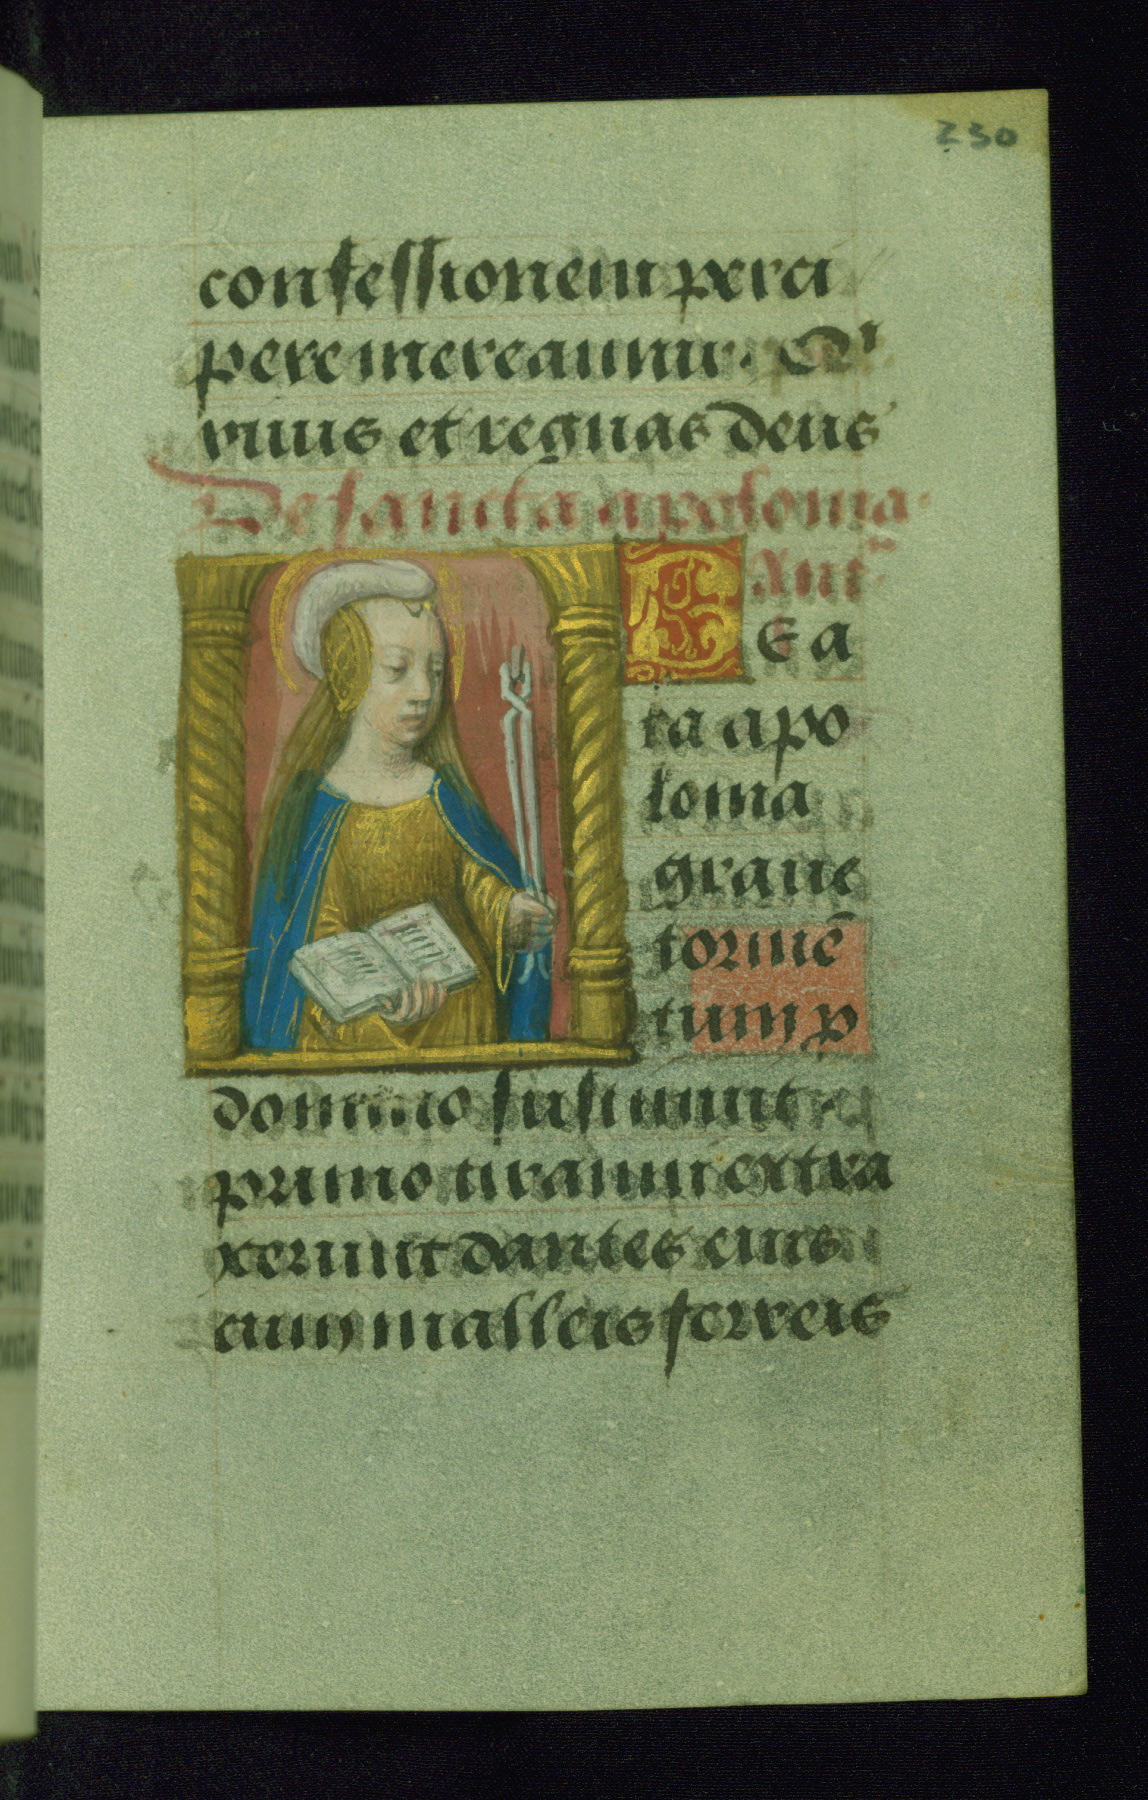 230
confessionem perci
pere mereamur. Qi
viuis et regnas deus
De sancta apolonia.
Ant.
BEA
ta apo
lonia
graue
tormē
tum p
domino sustinuit.
primo tiranni extra
xerunt dantes eius
cum malleis ferreis